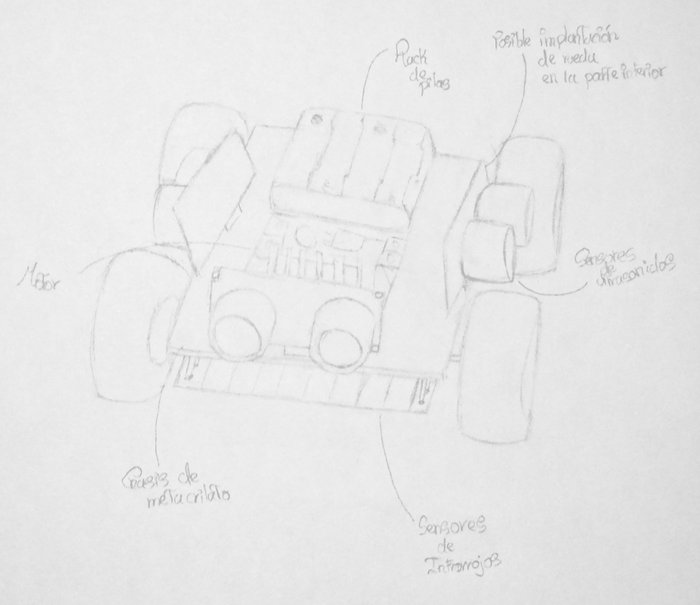 Pack
de
pilas
Posible implantación
de rueda
en la parte interior
Motor
Sensores
de
ultrasonidos
Chasis de
metacrilato
Sensores
de
Infrarrojos